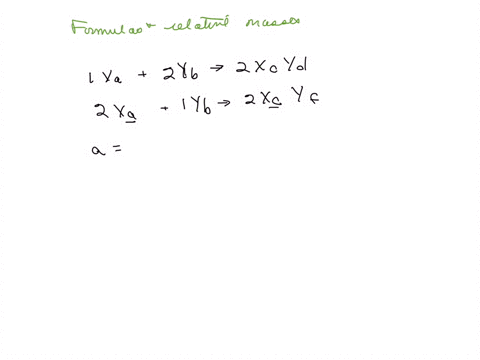 Formulas & relative masses
1 Xa + 2Yb → 2Xc Yd
2 Xa + 1Yb → 2Xc Yf
a =